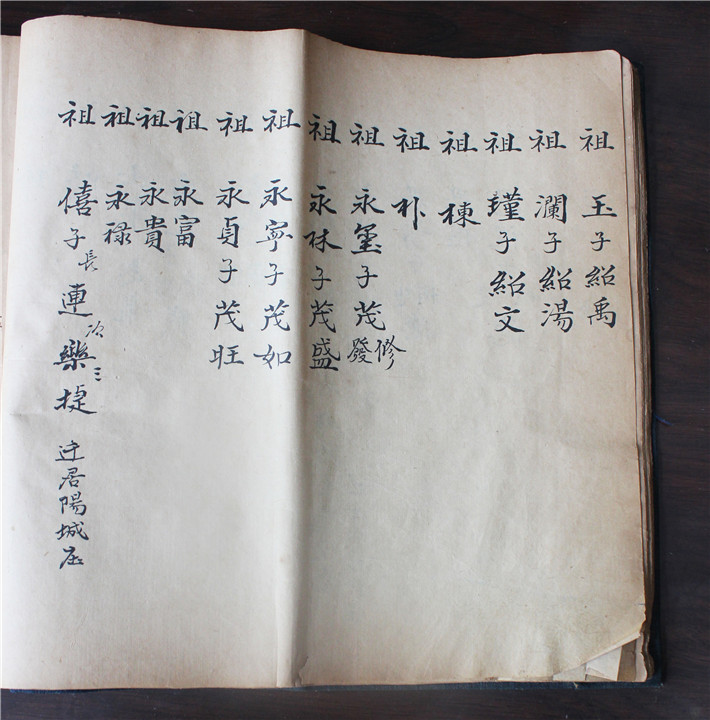 祖玉子紹禹
祖瀾子紹湯
祖瑾子紹文
祖棟
祖朴
祖永璽子茂修發
祖永祿子茂盛
祖永寧子茂如
祖永貞子茂旺
祖永富
祖永貴
祖永祿
祖僖子長連次樂三捷 迁居陽城